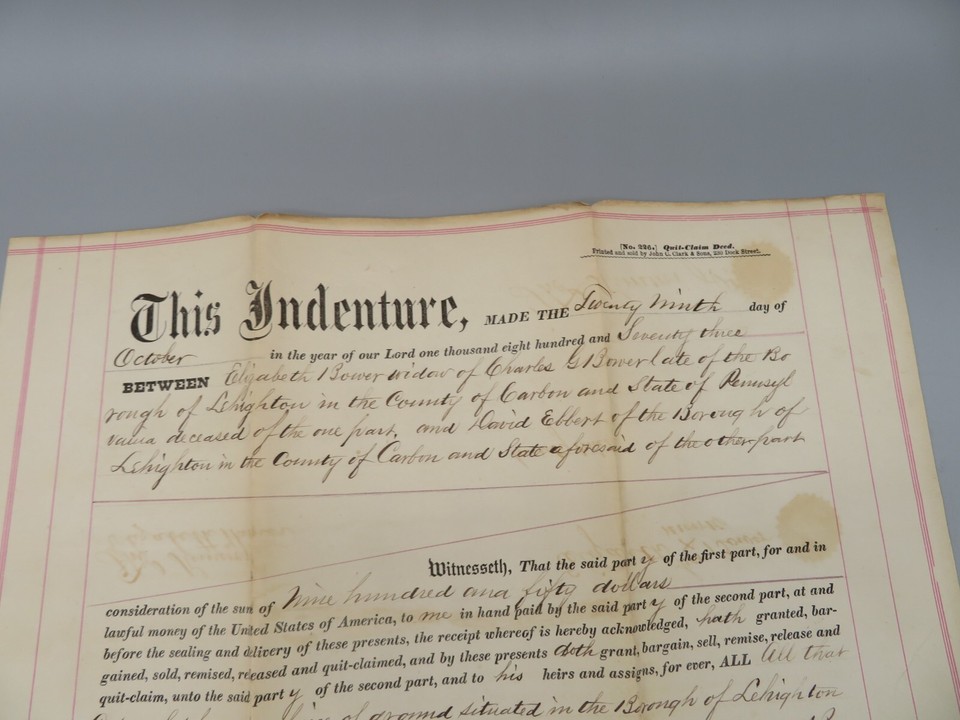 [No. 226.] Quit-Claim Deed.
Printed and sold by John C. Clark & Sons, 230 Dock Street.
This Indenture, MADE THE Twenty Ninth day of
October in the year of our Lord one thousand eight hundred and Seventy three
BETWEEN Elizabeth Bower widow of Charles G Bower late of the Bo
rough of Lehighton in the County of Carbon and State of Pennsyl
vania deceased of the one part, and David Ebbert of the Borough of
Lehighton in the County of Carbon and State aforesaid of the other part
Witnesseth, That the said party of the first part, for and in
consideration of the sum of Nine hundred and fifty dollars
lawful money of the United States of America, to me in hand paid by the said party of the second part, at and
before the sealing and delivery of these presents, the receipt whereof is hereby acknowledged, hath granted, bar-
gained, sold, remised, released and quit-claimed, and by these presents doth grant, bargain, sell, remise, release and
quit-claim, unto the said party of the second part, and to his heirs and assigns, for ever, ALL All that
of ground situated in the Borough of Lehighton